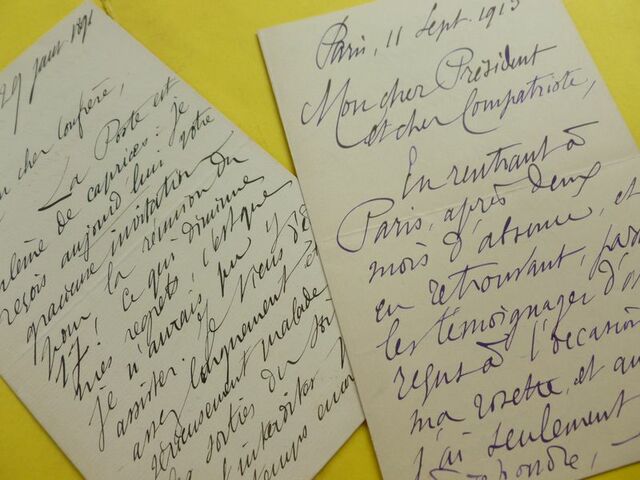 29 janv. 189
cher Confrère,
La Poste est
pleine de caprices : je
reçois aujourd'hui votre
gracieuse invitation
pour la réunion du
17 ; ce qui diminue
mes regrets, c'est que
je n'aurais pu y
assister. Je viens d'
assez longuement et
sérieusement malade
sorties du soir
interdites
temps
Paris, 11 Sept. 1913
Mon cher Président
et cher Compatriote,
En rentrant à
Paris, après deux
mois d'absence, et
en retrouvant, par
les témoignages d'
reçus à l'occasion
ma rosette, et
j'ai seulement
répondre,